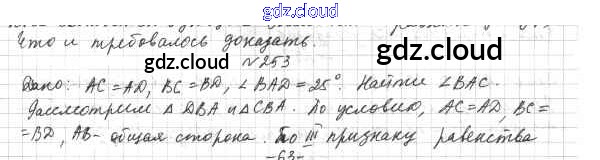 gdz.cloud
Что и требовалось доказать.
gdz.cloud
gdz.cloud
N253
Дано: AC=AD, BC=BD, ∠BAD=25°. Найти ∠BAC.
Рассмотрим △ DBA и △CBA. По условию, AC=AD, BC=
=BD, AB- общая сторона. По III признаку равенства
-63-